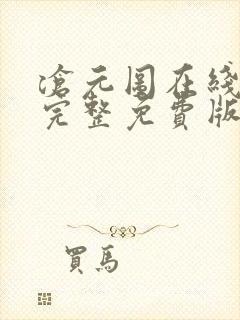 滄元圖在綫
完整免費版
買馬